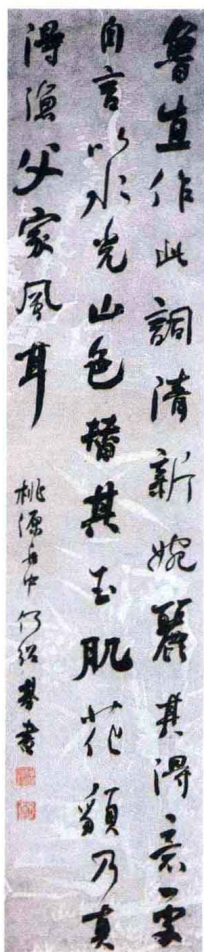 魯直作此詞清新婉麗其得意處
自言以水光山色替其玉肌花貌乃真
得漁父家風耳
桃源舟中何紹基書